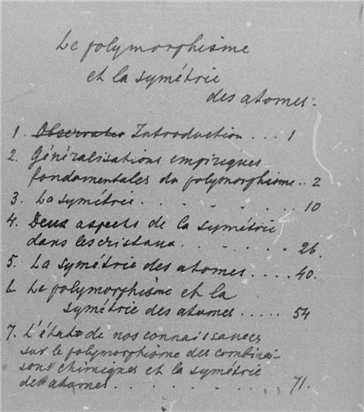 Le polymorphisme
et la symétrie
des atomes.
1. Observatio Introduction . . . . 1
2. Généralisations empireques
fondamentales du polymorphisme . . 2
3. La symétrie . . . . . . . 10
4. Deux aspects de la symétrie
dans les cristaux . . . . . . 26.
5. La symétrie des atomes . . . . 40.
6. Le polymorphisme et la
symétrie des atomes . . . . 54
7. L'état de nos connaissances
sur le polymorphisme des combinai-
sons chimiques et la symétrie
des atomes . . . . . . . . 71.